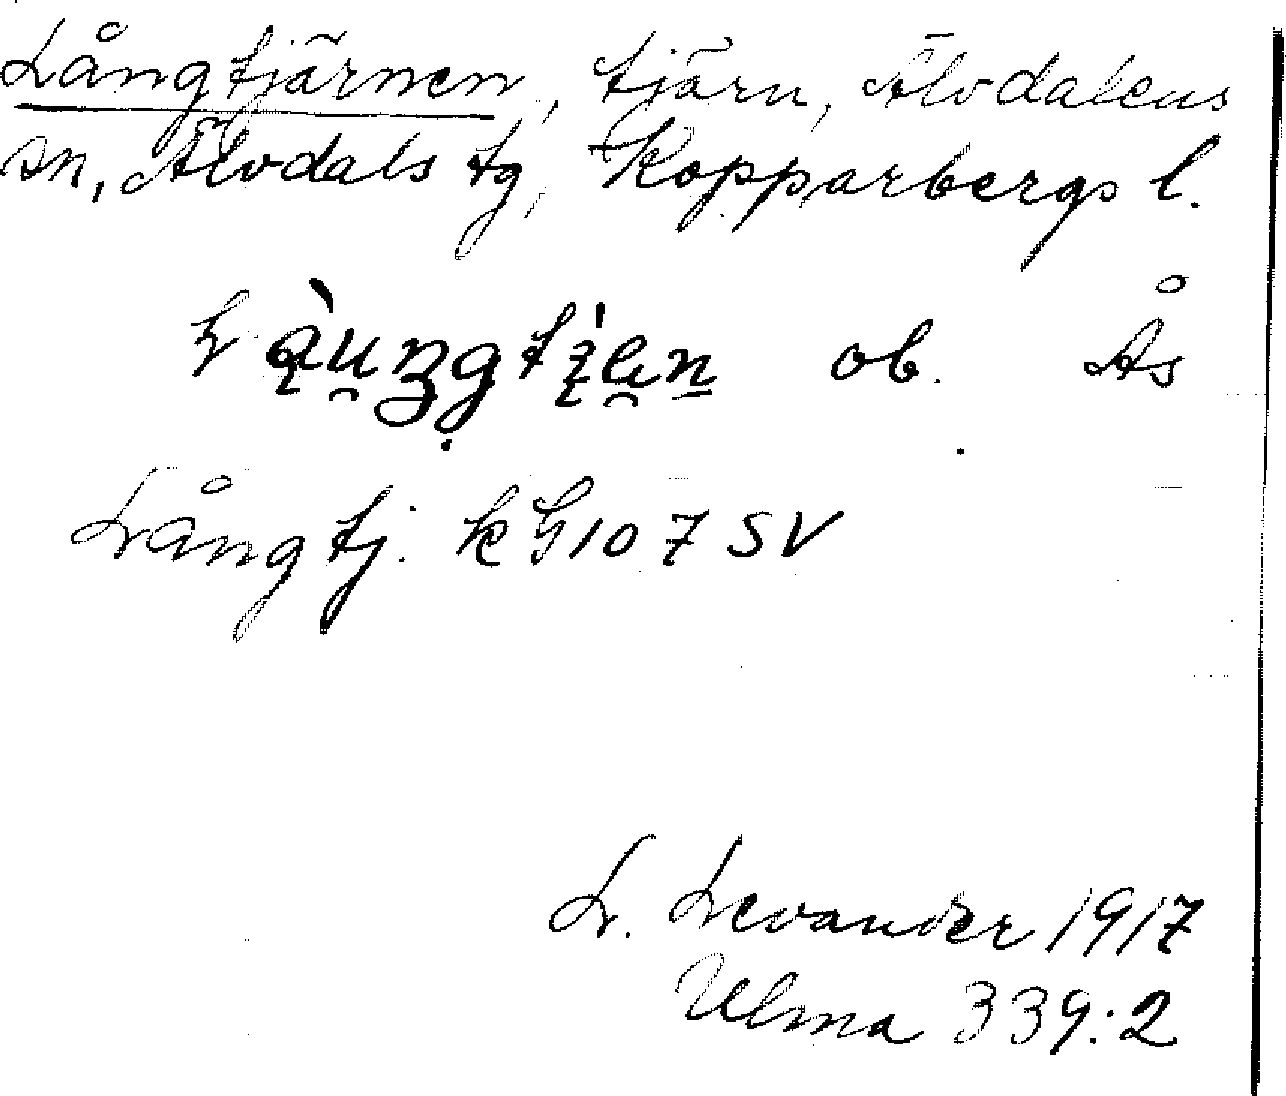 Långtjärnen, tjärn, Älvdalens
sn, Älvdals tg, Kopparbergs l.
ob. Ås
Långtj. kG 107 SV
L. Levander 1917
Ulma 339:2